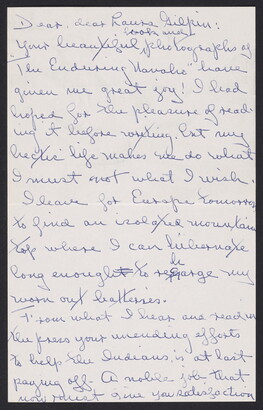 Dear, dear Laura Gilpin:
book and
Your beautiful photographs of
"The Enduring Navaho" have
given me great joy! I had
hoped for the pleasure of read-
ing it before writing, but my
hectic life makes me do what
I must not what I wish.
I leave for Europe tomorrow
to find an isolated mountain
top where I can hibernate
long enough to recharge my
worn out batteries.
From what I hear and read in
the press your unending efforts
to help the Indians, is at last
paying off. A noble job that
now must give you satisfaction